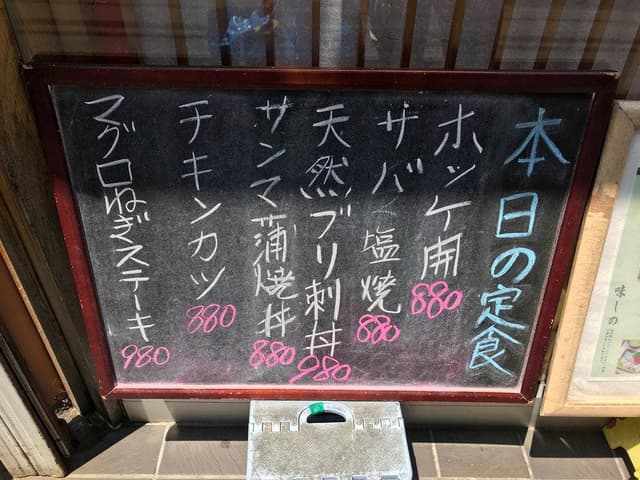 本日の定食
ホッケ開
880
サバ塩焼
880
天然ブリ刺丼
980
サンマ蒲焼丼
880
チキンカツ
880
マグロねぎステーキ
980
味しの